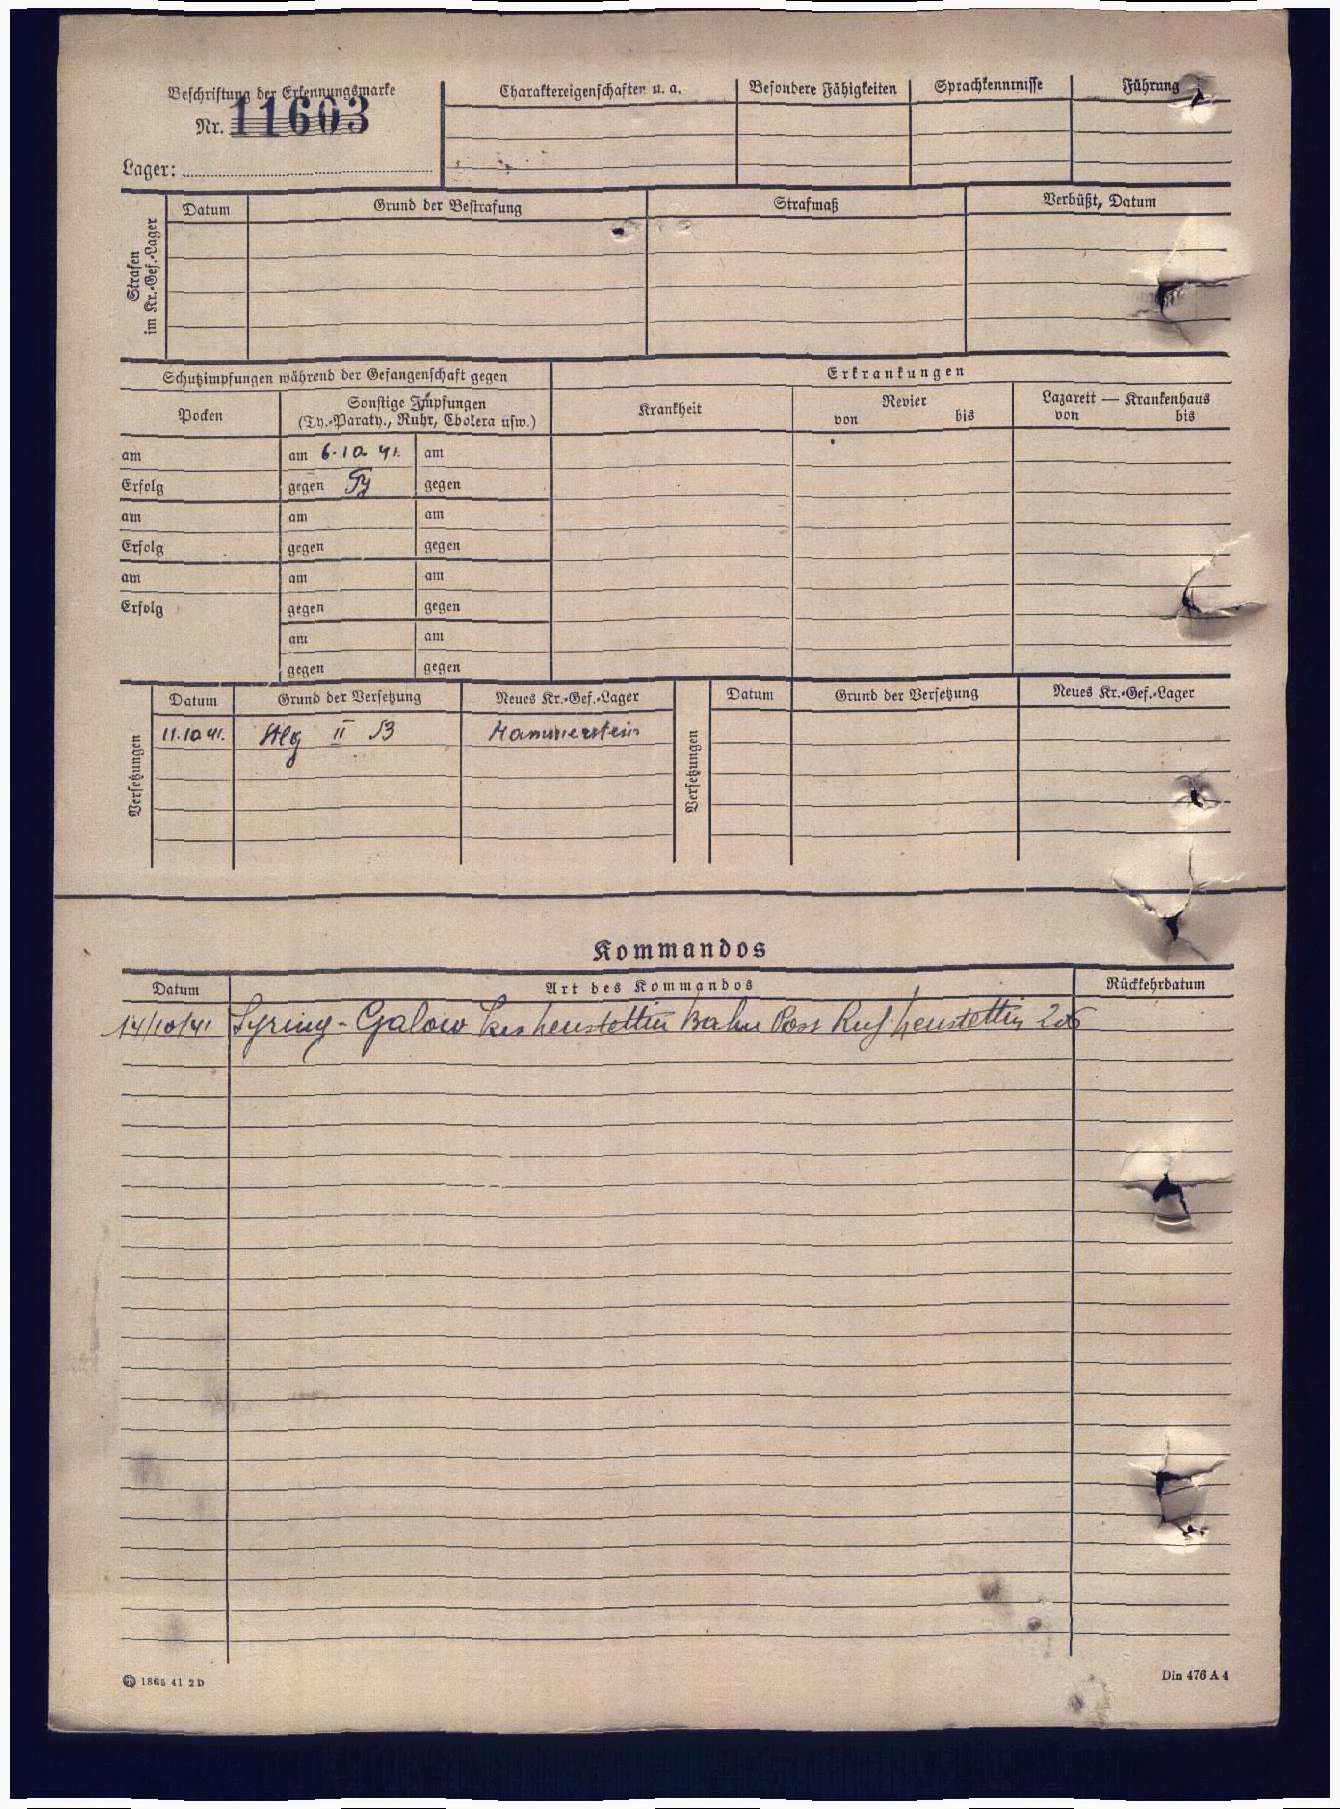 Beschriftung der Erkennungsmarke
Nr. 11603
Lager:
Charaktereigenschaften u. a.
Besondere Fähigkeiten
Sprachkenntnisse
Führung
Strafen
im Kr.-Gef.-Lager
Datum
Grund der Bestrafung
Strafmaß
Verbüßt, Datum
Schutzimpfungen während der Gefangenschaft gegen
Erkrankungen
Pocken
Sonstige Impfungen
(Ty.-Paraty., Ruhr, Cholera usw.)
Krankheit
Revier
von bis
Lazarett — Krankenhaus
von bis
am am 6.10.41. am
Erfolg gegen Ty gegen
am am am
Erfolg gegen gegen
am am am
Erfolg gegen gegen
am am
gegen gegen
Versetzungen
Datum Grund der Versetzung Neues Kr.-Gef.-Lager
11.10.41. Stlg II B Hammerstein
Versetzungen
Datum Grund der Versetzung Neues Kr.-Gef.-Lager
Kommandos
Datum Art des Kommandos Rückkehrdatum
14/10/41 Syring - Galow Neustettin Bahn Post Ruf Neustettin
1865 41 2 D
Din 476 A 4